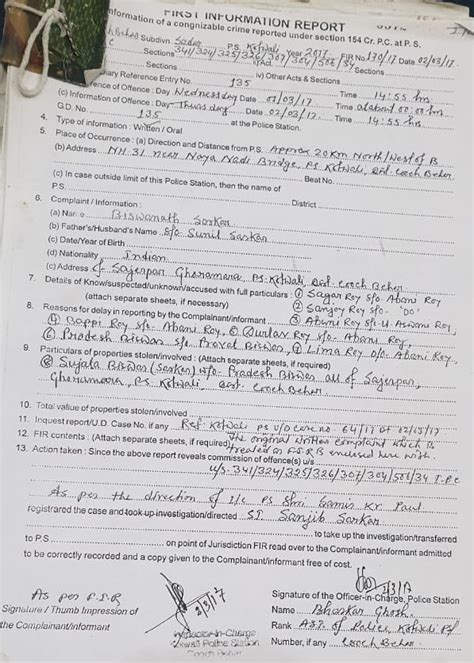 FIRST INFORMATION REPORT
Information of a congnizable crime reported under section 154 Cr. P.C. at P. S.
Subdivn. Sadar P.S. Kotwali Year 2017 FIR No 130/17 Date 02/03/17
Sections 341/324/325/326/307/304/506/34 Sections
Sections iv) Other Acts & Sections
Diary Reference Entry No. 135 Time 14:55 hrs
Offence : Day Wednesday Date 01/03/17 Time at about
(c) Information of Offence : Day Thursday Date 02/03/17 Time 14:55 hrs
G.D. No. 135 at the Police Station.
4. Type of information : Written / Oral
5. Place of Occurence : (a) Direction and Distance from P.S. Approx 20 Km North/West of B
(b) Address NH 31 near Naya Nadi Bridge, PS Kotwali, Dist Cooch Behar
Beat No.
(c) In case outside limit of this Police Station, then the name of
P.S. District
6. Complaint / Information :
(a) Name Biswanath Sarkar
(b) Father's/Husband's Name S/o Sunil Sarkar
(c) Date/Year of Birth
(d) Nationality Indian
(c) Address of Sajerpar Ghoramara, PS Kotwali, Dist Cooch Behar
7. Details of Know/suspected/unknown/accused with full particulars : ① Sagar Roy S/o Abani Roy
(attach separate sheets, if necessary) ② Sanjoy Roy S/o 'DO'
8. Reasons for delay in reporting by the Complainant/informant ③ Abani Roy S/o Lt Aswani Roy
④ Bappi Roy S/o Abani Roy, ⑤ Roy S/o Abani Roy,
⑥ Pradesh Biswas S/o Biswas, ⑦ Lima Roy D/o Abani Roy,
9. Particulars of properties stolen/involved : (Attach separate sheets, if required)
⑧ Sujata Biswas (Sarkar) W/o Pradesh Biswas all of Sajerpar,
Ghoramara, P.S. Kotwali Dist. Cooch Behar
10. Total value of properties stolen/involved
11. Inquest report/U.D. Case No. if any Ref. Kotwali PS U/D case no. 64/17
12. FIR contents : (Attach separate sheets, if required) The original written complaint which is
treated as F.I.R is enclosed here with.
13. Action taken : Since the above report reveals commission of offence(s) u/s
u/s 341/324/325/326/307/304/506/34 I.P.C
As per the direction of I/C PS Shri Samir Kr. Paul
registrared the case and took-up investigation/directed SI Sanjib Sarkar
to take up the investigation/transferred
to P.S. on point of Jurisdiction FIR read over to the Complainant/informant admitted
to be correctly recorded and a copy given to the Complainant/informant free of cost.
As per F.I.R
Signature / Thumb Impression of
the Complainant/informant
2/3/17
Inspector-in-Charge
Kotwali Police Station
Cooch Behar
2/3/17
Signature of the Officer-in-Charge, Police Station
Name Bhaskar Ghosh
Rank A.S.I. of Police, Kotwali PS
Number, if any Cooch Behar